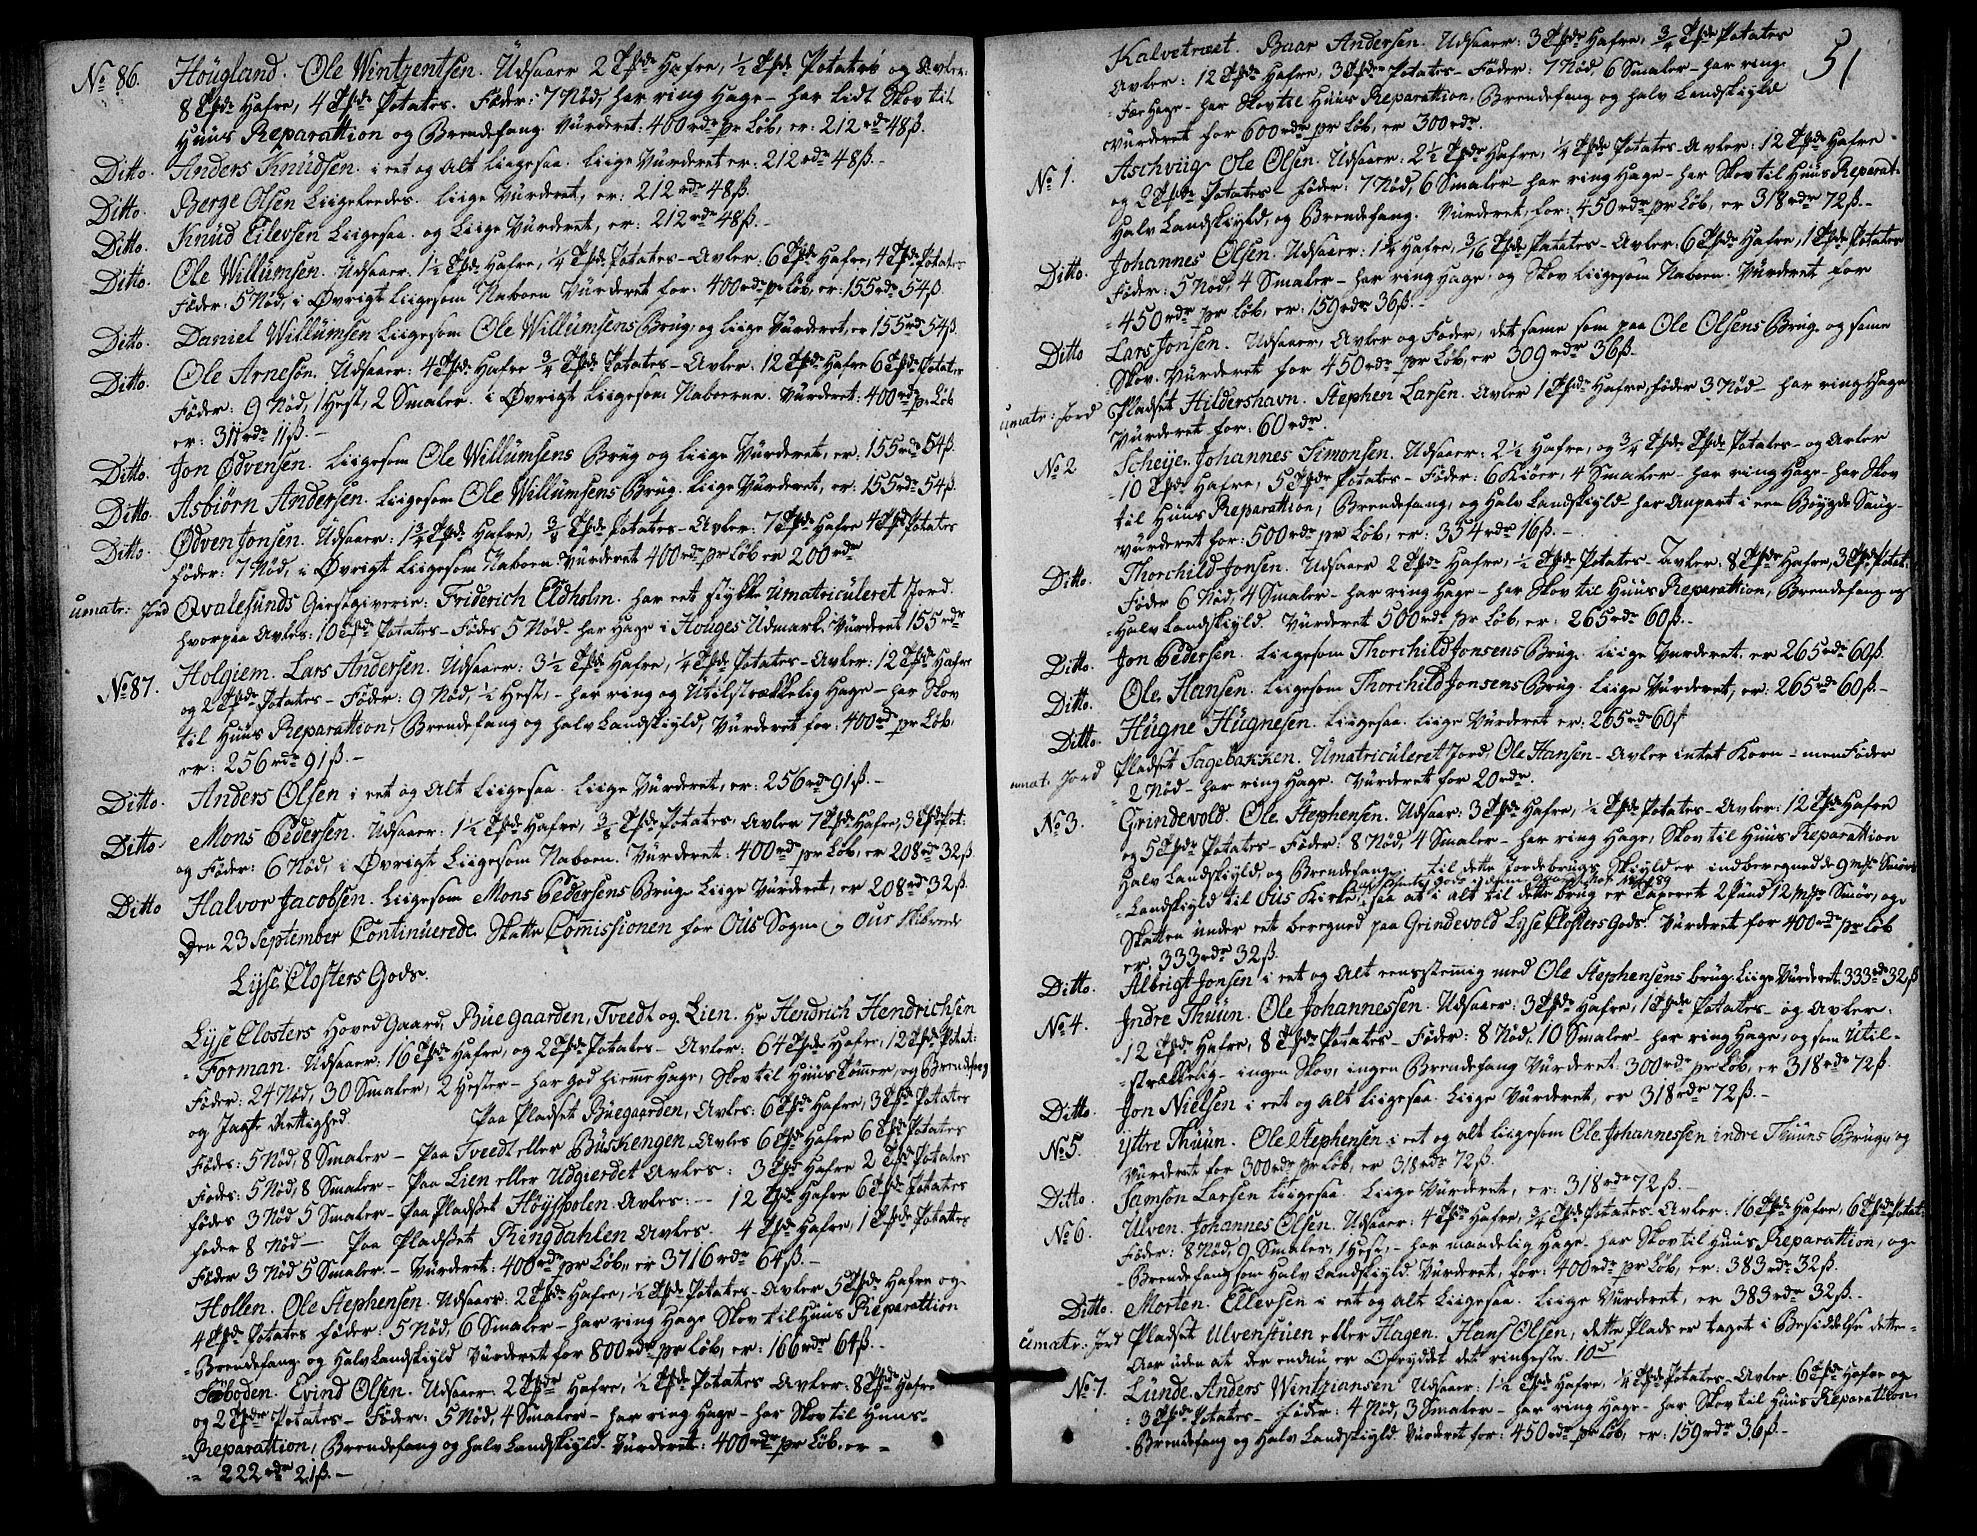 No 86. Höugland. Ole Wintzentsen. Udsaaer 2 Tønde Hafre, 1/2 Tønde Potates og Avler:
8 Tønde Hafre, 4 Tønde Potates. Føder: 7 Nød, har ring Hage – har lidt Skov til
Huus Reparattion og Brendefang. Vurderet: 400 rdr pr Løb, er: 212 rdr 48 ß.
Ditto. Anders Knudsen. i eet og Alt liigesaa. liige Vurderet er: 212 rdr 48 ß. –
Ditto. Berge Olsen Liigeleedes. liige Vurderet, er: 212 rdr 48 ß.
Ditto. Knud Eilevsen Liigesaa. og Liige Vurderet, er: 212 rdr 48 ß. –
Ditto. Ole Willumsen. Udsaaer: 1 1/2 Tønde Hafre, 1/4 Tønde Potates – Avler: 6 Tønde Hafre, 4 Tønde Potates
Føder: 5 Nød, i Øvrigt liigesom Naboen Vurderet for: 400 rdr pr Løb, er: 155 rdr 54 ß
Ditto. Daniel Willumsen liigesom Ole Willumsens Brug, og liige Vurderet, er 155 rdr 54 ß.
Ditto. Ole Arnesön. Udsaaer: 4 Tønde Hafre 3/4 Tønde Potates – Avler: 12 Tønde Hafre 6 Tønde Potates
Føder: 9 Nød, 1 Hest, 2 Smaler. i Øvrigt liigesom Naboerne. Vurderet: 400 rdr pr Løb
er: 311 rdr 11 ß. –
Ditto. Jon Ødvensen. liigesom Ole Willumsens Brug og liige Vurderet, er: 155 rdr 54 ß.
Ditto. Asbiörn Andersen. liigesom Ole Willumsens Brug. liige Vurderet, er: 155 rdr 54 ß.
Ditto. Ødven Jonsen. Udsaaer: 1 3/4 Tønde Hafre, 3/8 Tønde Potates – Avler: 7 Tønde Hafre 4 Tønde Potates
føder: 7 Nød, i Øvrigt liigesom Naboen Vurderet 400 rdr pr Løb er 200 rdr
umatr: Jord Qvalesunds Giestgiverie: Friderich Eldholm. har eet stykke Umatriculeret Jord.
hvorpaa Avles: 10 Tønde Potates – Fødes 5 Nød – har Hage i Houges Udmark. Vurderet 155 rdr
No 87. Holgiem. Lars Andersen. Udsaaer: 3 1/2 Tønde Hafre, 1/4 Tønde Potates – Avler: 12 Tønde Hafre
og 2 Tønde Potates – Føder: 9 Nød, 1/2 Hest, – har ring og Utilstrækkelig Hage – har Skov
til Huus Reparattion, Brendefang og halv Landskyld, Vurderet for: 400 rdr pr Løb,
er: 256 rdr 91 ß. –
Ditto. Anders Olsen i eet og Alt liigesaa. liige Vurderet, er: 256 rdr 91 ß. –
Ditto. Mons Pedersen. Udsaaer: 1 1/2 Tønde Hafre, 3/8 Tønde Potates. Avler 7 Tønde Hafre, 3 Tønde Pot:
og Føder: 6 Nød, i Øvrigt Liigesom Naboen. Vurderet: 400 rdr pr Løb, er 208 rdr 32 ß.
Ditto Halvor Jacobsen. Liigesom Mons Pedersens Brug liige Vurderet, er 208 rdr 32 ß.
Den 23 September Continuerede Skatte Commissionen for Ous Sogn i Ous Skibrede
Lyse Closters Gods.
Lyse Closters Hoved Gaard, Buegaarden, Tveedt og Lien. Hr Hendrich Hendrichsen
Forman. Udsaaer: 16 Tønde Hafre, og 2 Tønde Potates – Avler: 64 Tønde Hafre, 12 Tønde Potat:
Føder: 24 Nød, 30 Smaler, 2 Hester – har god hiemme Hage, Skov til Huus Tømmer, og Brendefang
og Jagt Rettighed. Paa Pladset Buegaarden, Avles: 6 Tønde Hafre, 3 Tønde Potates
Fødes: 5 Nød, 8 Smaler – Paa Tveedt eller Buskengen, Avles 6 Tønde Hafre 6 Tønde Potates
Fødes: 5 Nød, 8 Smaler – Paa Lien eller Udgierdet Avles: 3 Tønde Hafre 2 Tønde Potates
Fødes 3 Nød 5 Smaler – Paa Pladset Höysholen. Avles: – 12 Tønde Hafre 6 Tønde Potates
føder 8 Nød – Paa Pladset Ringdahlen Avles. 4 Tønde Hafre, 1 Tønde Potates
Føder 3 Nød 5 Smaler. – Vurderet: 400 rdr pr Løb, er 3716 rdr 64 ß. –
Hollen. Ole Stephensen. Udsaaer: 2 Tønde Hafre, 1/2 Tønde Potates – Avler 5 Tønde Hafre og
4 Tønde Potates føder: 5 Nød, 6 Smaler – har ring Hage Skov til Huus Reparattion
Brendefang og Halv Landskyld Vurderet for 800 rdr pr Løb, er: 166 rdr 64 ß. –
Söboden. Evind Olsen. Udsaaer: 2 Tønde Hafre, 1/2 Tønde Potates – Avler: 8 Tønde Hafre
og 2 Tønde Potates – Føder: 5 Nød, 4 Smaler – har ring Hage – har Skov til Huus
Reparattion, Brendefang og halv Landskyld. Vurderet: 400 rdr pr Løb, er –
222 rdr 21 ß. –
51
Kalvetræet. Baar Andersen. Udsaaer: 3 Tønde Hafre, 3/4 Tønde Potates
Avler: 12 Tønde Hafre, 3 Tønde Potates – Føder: 7 Nød, 6 Smaler – har ring
Fæe Hage – har Skov til Huus Reparattion, Brendefang og halv Landskyld
vurderet for 600 rdr pr Løb, er 300 rdr.
No 1. Aschviig. Ole Olsen. Udsaaer: 2 1/2 Tønde Hafre, 1/4 Tønde Potates – Avler: 12 Tønde Hafre
og 2 Tønde Potates – føder: 7 Nød, 6 Smaler – har ring Hage – har Skov til Huus Reparat:
Halv Landskyld, og Brendefang. Vurderet, for: 450 rdr pr Løb, er 318 rdr 72 ß. –
Ditto. Johannes Olsen. Udsaaer: 1 1/4 Hafre, 3/16 Tønde Potates – Avler: 6 Tønde Hafre, 1 Tønde Potates
Føder: 5 Nød, 4 Smaler – har ring Hage og Skov liigesom Naboen. Vurderet for
450 rdr pr Løb, er: 159 rdr 36 ß. –
Ditto Lars Jonsen. Udsaaer, Avler og Føder, det same som paa Ole Olsens Brug og same
Skov. Vurderet for 450 rdr pr Løb, er 309 rdr 36 ß.
umatr: Jord Pladset Hildershavn. Stephen Larsen. Avler 1 Tønde Hafre, føder 3 Nød – har ring Hage
Vurderet for: 60 rdr.
No 2. Scheije. Johannes Simonsen. Udsaaer: 2 1/2 Hafre, og 3/4 Tønde Potates – og Avler
10 Tønde Hafre, 5 Tønde Potates – Føder: 6 Kiöer, 4 Smaler – har ring Hage – har Skov
til Huus Reparattion, Brendefang, og halv Landskyld – har Anpart i een Bøygde Saug –
vurderet for: 500 rdr pr Løb, er: 354 rdr 16 ß. –
Ditto. Thorchild Jonsen. Udsaaer 2 Tønde Hafre, 1/2 Tønde Potates – Avler: 8 Tønde Hafre, 3 Tønde Potat:
Føder 6 Nød, 4 Smaler – har ring Hage – har Skov til Huus Reparattion, Brendefang og
Halv Landskyld. Vurderet 500 rdr pr Løb, er: 265 rdr 60 ß. –
Ditto. Jon Pedersen. liigesom Thorchild Jonsens Brug. liige Vurderet. er 265 rdr 60 ß.
Ditto. Ole. Hansen. liigesom Thorchild Jonsens Brug. liige Vurderet, er: 265 rdr 60 ß. –
Ditto. Hugne Hugnesen. Liigesaa. liige Vurderet er: 265 rdr 60 ß
umat: Jord Pladset Sagebakken. Umatriculeret Jord, Ole Hansen – Avler intet Korn – men Føder
2 Nød – har ring Hage. Vurderet for 20 rdr.
No 3. Grindevold. Ole Stephensen. Udsaar: 3 Tønde Hafre, 1/2 Tønde Potates – Avler: 12 Tønde Hafre
og 5 Tønde Potates – Føder: 8 Nød, 4 Smaler – har ring Hage, Skov til Huus Reparattion
Halv Landskyld, og Brendefang – til dette Jordebrugs Skyld er indberegned de 9 mrk Smørs
Landskyld til Ous Kirke, saa at i alt til dette brug er Taxeret 2 pund 12 mrk Smør, og
Skatten under eet beregned paa Grindevold Lyse Closters Gods. Vurderet for 400 rdr pr Løb
er: 333 rdr 32 ß.
Ditto. Albrigt Jonsen i eet og Alt eensstemig med Ole Stephensens brug. Liige Vurderet. 333 rdr 32 ß
No 4. Indre Thuun. Ole Johannessen. Udsaaer: 3 Tønde Hafre, 1 Tønde Potates – og Avler:
12 Tønde Hafre, 8 Tønde Potates – Føder: 8 Nød, 10 Smaler – har ring Hage, og som Util-
strækkelig – ingen Skov, ingen Brendefang Vurderet: 300 rdr pr Løb, er 318 rdr 72 ß.
Ditto. Jon Nielsen i eet og Alt liigesaa. Liige Vurderet, er 318 rdr 72 ß. –
No 5. Yttre Thuun. Ole Stephensen i eet og alt liigesom Ole Johannessen indre Thuuns Brug, og
Vurderet for 300 rdr pr Løb, er 318 rdr 72 ß.
Ditto. Samson Larsen liigesaa. Liige Vurderet, er: 318 rdr 72 ß. –
No 6. Ulven. Johannes Olsen. Udsaaer: 4 Tønde Hafre, 3/4 Tønde Potates. Avler: 16 Tønde Hafre, 6 Tønde Potat:
Føder: 8 Nød, 9 Smaler, 1 Hest, – har maadelig Hage – har Skov til Huus Reparattion, og
Brendefang som halv Landskyld. Vurderet, for: 400 rdr pr Løb, er: 383 rdr 32 ß.
Ditto. Morten. Ellevsen i eet og Alt Liigesaa. liige Vurderet, er 383 rdr 32 ß. –
umatr: Jord Pladset Ulvenstuen eller Hagen. Hans Olsen, dette Plads er taget i Besiddelse dette
Aar uden at der endnu er Opryddet det ringeste. 10 rd
No 7. Lunde. Anders Wintziansen Udsaaer: 1 1/2 Tønde Hafre, 1/4 Tønde Potates – Avler: 6 Tønde Hafre og
3 Tønde Potates – føder: 4 Nød, 3 Smaler – har ring Hage – har Skov til Huus Reparattion,
Brendefang og Halv Landskyld. Vurderet for: 450 rdr pr Løb, er: 159 rdr 36 ß. –